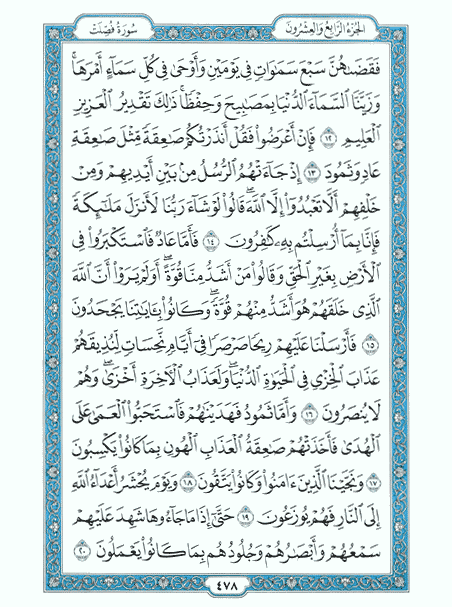 سُورَةُ فُصِّلَتْ
الجُزْءُ الرَّابِعُ وَالعِشْرُونَ
فَقَضَىٰهُنَّ سَبْعَ سَمَٰوَاتٍ فِي يَوْمَيْنِ وَأَوْحَىٰ فِي كُلِّ سَمَآءٍ أَمْرَهَاۚ
وَزَيَّنَّا ٱلسَّمَآءَ ٱلدُّنْيَا بِمَصَٰبِيحَ وَحِفْظٗاۚ ذَٰلِكَ تَقْدِيرُ ٱلْعَزِيزِ
ٱلْعَلِيمِ ١٢ فَإِنْ أَعْرَضُوا۟ فَقُلْ أَنذَرْتُكُمْ صَٰعِقَةٗ مِّثْلَ صَٰعِقَةِ
عَادٖ وَثَمُودَ ١٣ إِذْ جَآءَتْهُمُ ٱلرُّسُلُ مِنۢ بَيْنِ أَيْدِيهِمْ وَمِنْ
خَلْفِهِمْ أَلَّا تَعْبُدُوٓا۟ إِلَّا ٱللَّهَۖ قَالُوا۟ لَوْ شَآءَ رَبُّنَا لَأَنزَلَ مَلَٰٓئِكَةٗ
فَإِنَّا بِمَآ أُرْسِلْتُم بِهِۦ كَٰفِرُونَ ١٤ فَأَمَّا عَادٞ فَٱسْتَكْبَرُوا۟ فِي
ٱلْأَرْضِ بِغَيْرِ ٱلْحَقِّ وَقَالُوا۟ مَنْ أَشَدُّ مِنَّا قُوَّةًۖ أَوَلَمْ يَرَوْا۟ أَنَّ ٱللَّهَ
ٱلَّذِي خَلَقَهُمْ هُوَ أَشَدُّ مِنْهُمْ قُوَّةٗۖ وَكَانُوا۟ بِـَٔايَٰتِنَا يَجْحَدُونَ
١٥ فَأَرْسَلْنَا عَلَيْهِمْ رِيحٗا صَرْصَرٗا فِيٓ أَيَّامٖ نَّحِسَاتٖ لِّنُذِيقَهُمْ
عَذَابَ ٱلْخِزْيِ فِي ٱلْحَيَوٰةِ ٱلدُّنْيَاۖ وَلَعَذَابُ ٱلْأٓخِرَةِ أَخْزَىٰۖ وَهُمْ
لَا يُنصَرُونَ ١٦ وَأَمَّا ثَمُودُ فَهَدَيْنَٰهُمْ فَٱسْتَحَبُّوا۟ ٱلْعَمَىٰ عَلَى
ٱلْهُدَىٰ فَأَخَذَتْهُمْ صَٰعِقَةُ ٱلْعَذَابِ ٱلْهُونِ بِمَا كَانُوا۟ يَكْسِبُونَ
١٧ وَنَجَّيْنَا ٱلَّذِينَ ءَامَنُوا۟ وَكَانُوا۟ يَتَّقُونَ ١٨ وَيَوْمَ يُحْشَرُ أَعْدَآءُ ٱللَّهِ
إِلَى ٱلنَّارِ فَهُمْ يُوزَعُونَ ١٩ حَتَّىٰٓ إِذَا مَا جَآءُوهَا شَهِدَ عَلَيْهِمْ
سَمْعُهُمْ وَأَبْصَٰرُهُمْ وَجُلُودُهُم بِمَا كَانُوا۟ يَعْمَلُونَ ٢٠
٤٧٨